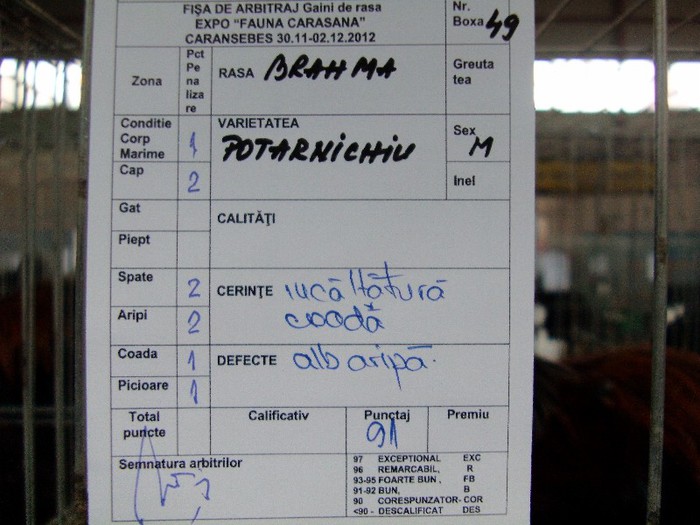 FIȘA DE ARBITRAJ Gaini de rasa
EXPO “FAUNA CARASANA”
CARANSEBES 30.11-02.12.2012
Nr.
Boxa 49
Zona
Pct
Pe
na
liza
re
RASA BRAHMA
Greuta
tea
Conditie
Corp
Marime
1
VARIETATEA
POTARNICHIU
Sex
M
Cap
2
Inel
Gat
CALITĂȚI
Piept
Spate
2
CERINȚE
coodă
Aripi
2
Coada
1
DEFECTE alb aripă.
Picioare
1
Total
puncte
Calificativ
Punctaj
91
Premiu
Semnatura arbitrilor
97 EXCEPTIONAL EXC
96 REMARCABIL, R
93-95 FOARTE BUN , FB
91-92 BUN, B
90 CORESPUNZATOR- COR
<90 - DESCALIFICAT DES